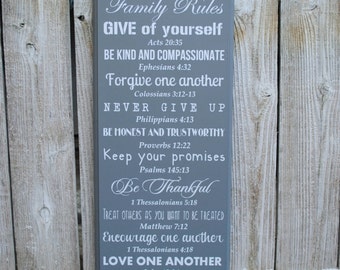 Family Rules
GIVE of yourself
Acts 20:35
BE KIND AND COMPASSIONATE
Ephesians 4:32
Forgive one another
Colossians 3:12-13
NEVER GIVE UP
Philippians 4:13
BE HONEST AND TRUSTWORTHY
Proverbs 12:22
Keep your promises
Psalms 145:13
Be Thankful
1 Thessalonians 5:18
TREAT OTHERS AS YOU WANT TO BE TREATED
Matthew 7:12
Encourage one another
1 Thessalonians 4:18
LOVE ONE ANOTHER